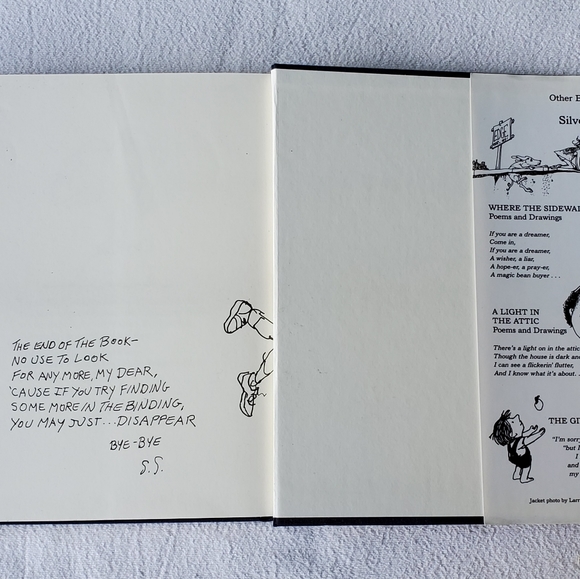 THE END OF THE BOOK—
NO USE TO LOOK
FOR ANY MORE, MY DEAR,
'CAUSE IF YOU TRY FINDING
SOME MORE IN THE BINDING,
YOU MAY JUST...DISAPPEAR
BYE-BYE
S.S.
Other
EDGE
WHERE THE
Poems and Drawings
If you are a dreamer,
Come in,
If you are a dreamer,
A wisher, a liar,
A hope-er, a pray-er,
A magic bean buyer . . .
A LIGHT IN
THE ATTIC
Poems and Drawings
There's a light on in the attic
Though the house is dark and
I can see a flickerin' flutter,
And I know what it's about. .
THE
"I'm
"but
I
and
my
Jacket photo by